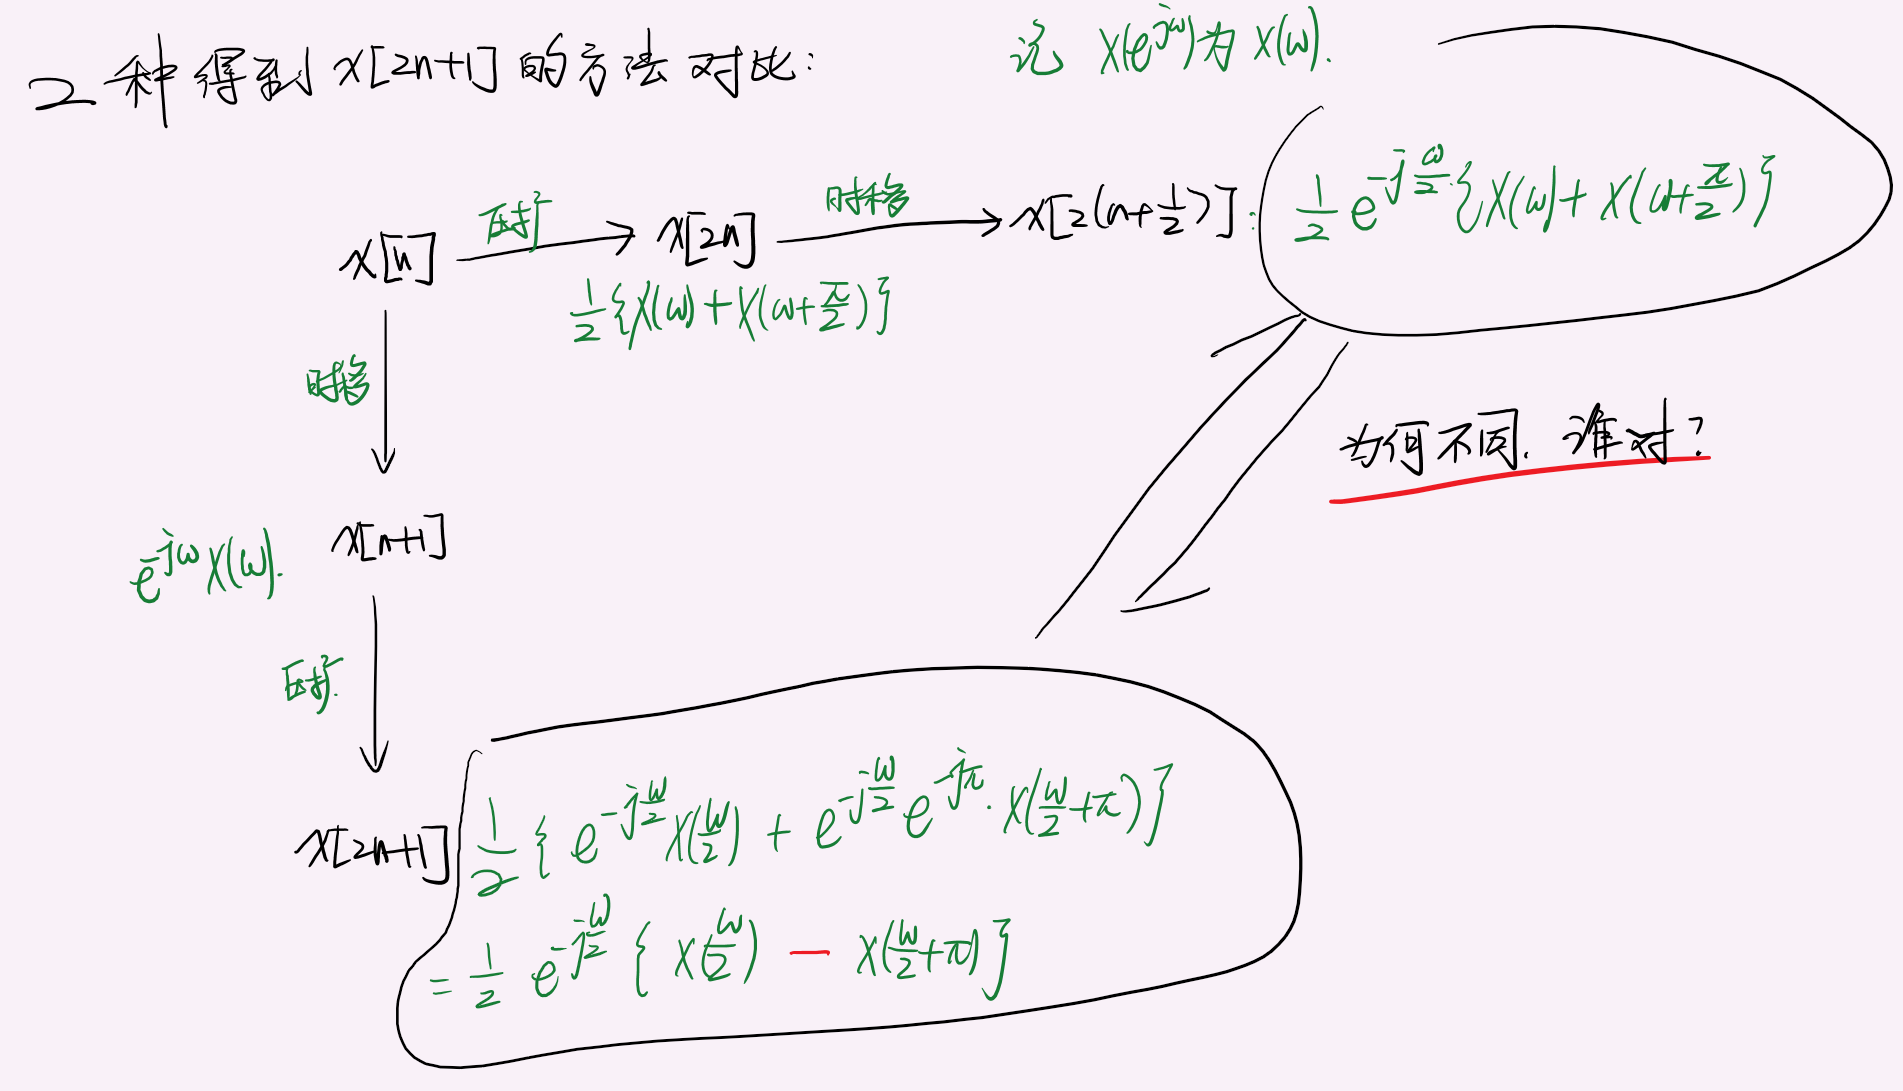 2种得到 x[2n+1] 的方法对比:
记 X(e^{jω})为 X(ω).
x[n] 压扩 x[2n] 时移 x[2(n+\frac{1}{2})]: \frac{1}{2} e^{-j\frac{ω}{2}}·{X(ω)+ X(ω+\frac{π}{2})}
\frac{1}{2}{X(ω)+X(ω+\frac{π}{2})}
时移
为何不同. 谁对?
e^{-jω}X(ω). x[n+1]
压扩.
x[2n+1] \frac{1}{2}{ e^{-j\frac{ω}{2}}X(\frac{ω}{2}) + e^{-j\frac{ω}{2}}e^{-jπ}·X(\frac{ω}{2}+π)}
= \frac{1}{2} e^{-j\frac{ω}{2}} { X(\frac{ω}{2}) − X(\frac{ω}{2}+π)}